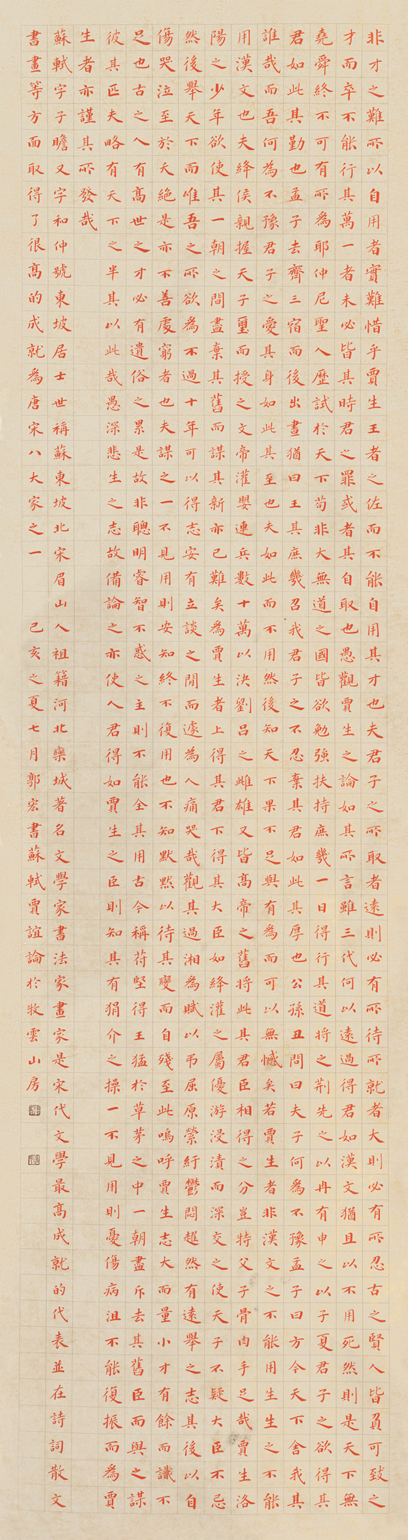 非才之難所以自用者實難惜乎賈生王者之佐而不能自用其才也夫君子之所取者遠則必有所待所就者大則必有所忍古之賢人皆負可致之
才而卒不能行其萬一者未必皆其時君之罪或者其自取也愚觀賈生之論如其所言雖三代何以遠過得君如漢文猶且以不用死然則是天下無
堯舜終不可有所為耶仲尼聖人歷試於天下苟非大無道之國皆欲勉強扶持庶幾一日得行其道將之荊先之以冉有申之以子夏君子之欲得其
君如此其勤也孟子去齊三宿而後出晝猶曰王其庶幾召我君子之不忍棄其君如此其厚也公孫丑問曰夫子何為不豫孟子曰方今天下舍我其
誰哉而吾何為不豫君子之愛其身如此其至也夫如此而不用然後知天下果不足與有為而可以無憾矣若賈生者非漢文之不能用生生之不能
用漢文也夫絳侯親握天子璽而授之文帝灌嬰連兵數十萬以決劉呂之雌雄又皆高帝之舊將此其君臣相得之分豈特父子骨肉手足哉賈生洛
陽之少年欲使其一朝之間盡棄其舊而謀其新亦已難矣為賈生者上得其君下得其大臣如絳灌之屬優游浸漬而深交之使天子不疑大臣不忌
然後舉天下而唯吾之所欲為不過十年可以得志安有立談之間而遽為人痛哭哉觀其過湘為賦以弔屈原縈紆鬱悶趯然有遠舉之志其後以自
傷哭泣至於夭絕是亦不善處窮者也夫謀之一不見用則安知終不復用也不知默默以待其變而自殘至此嗚呼賈生志大而量小才有餘而識不
足也古之人有高世之才必有遺俗之累是故非聰明睿智不惑之主則不能全其用古今稱苻堅得王猛於草茅之中一朝盡斥去其舊臣而與之謀
彼其匹夫略有天下之半其以此哉愚深悲生之志故備論之亦使人君得如賈生之臣則知其有狷介之操一不見用則憂傷病沮不能復振而為賈
生者亦謹其所發哉
蘇軾字子瞻又字和仲號東坡居士世稱蘇東坡北宋眉山人祖籍河北欒城著名文學家書法家畫家是宋代文學最高成就的代表並在詩詞散文
書畫等方面取得了很高的成就為唐宋八大家之一 己亥之夏七月郭宏書蘇軾賈誼論於牧雲山房